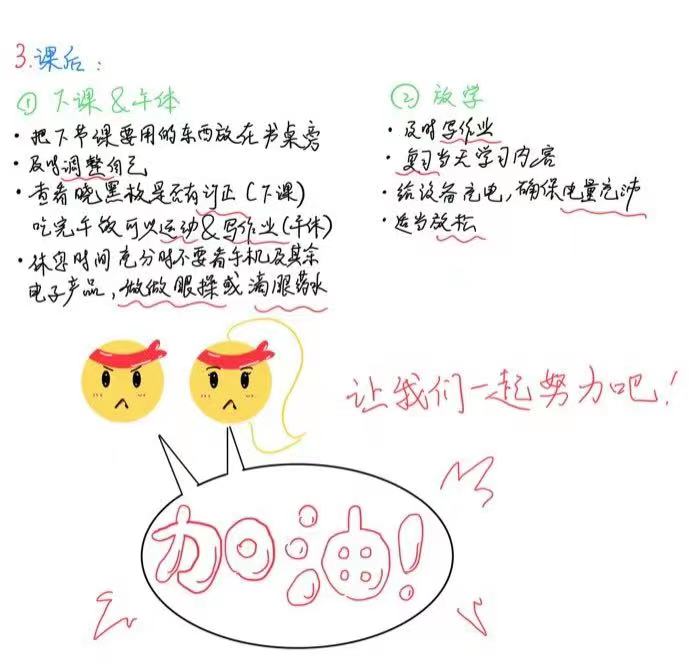 3.课后：
① 下课&午休
• 把下节课要用的东西放在书桌旁
• 及时调整自己
• 查看晓黑板是否有订正(下课)
吃完午饭可以运动&写作业(午休)
• 休息时间充分时不要看手机及其余
电子产品，做做眼操或滴眼药水
② 放学
• 及时写作业
• 复习当天学习内容
• 给设备充电，确保电量充沛
• 适当放松
让我们一起努力吧！
加油！